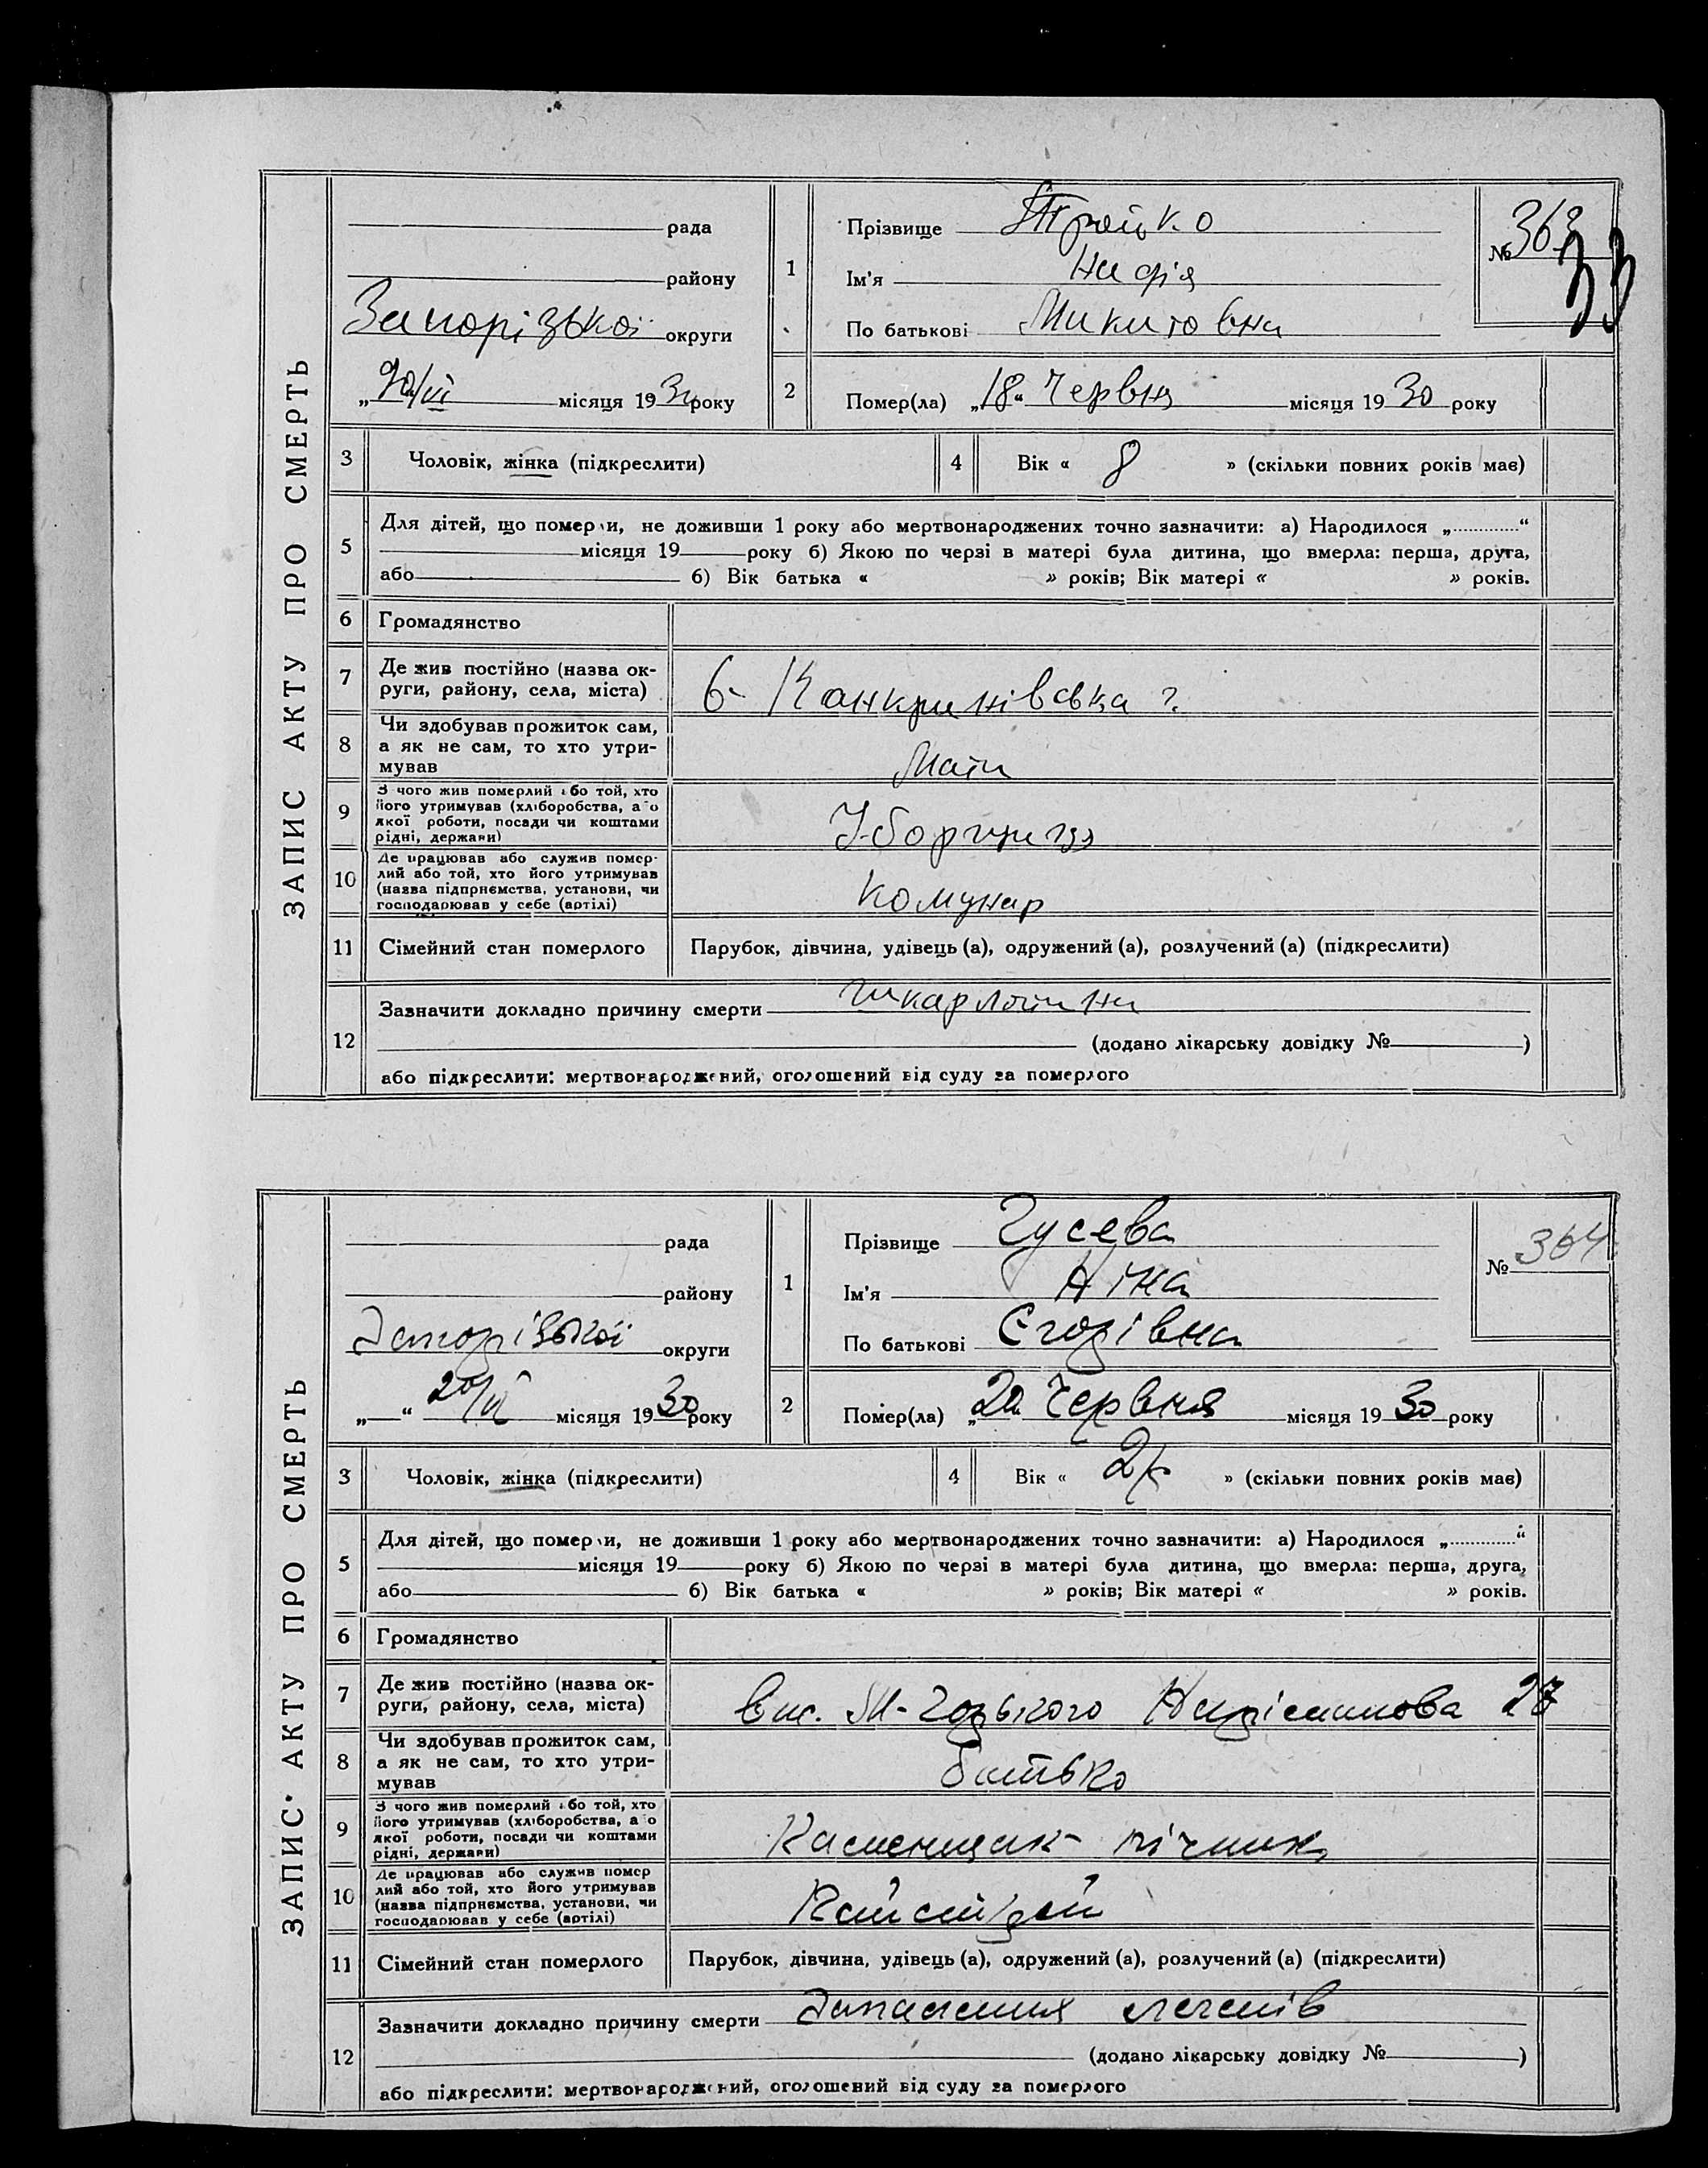 ЗАПИС АКТУ ПРО СМЕРТЬ
рада
району
Запорізької округи
„20/VI місяця 1930 року
1
Прізвище Тройко
Ім'я
По батькові Микитовна
№ 363
33
2
Помер(ла) „18“ Червня місяця 1930 року
3
Чоловік, жінка (підкреслити)
4
Вік « 8 » (скільки повних років має)
5
Для дітей, що померли, не доживши 1 року або мертвонароджених точно зазначити: а) Народилося „............“
місяця 19 року б) Якою по черзі в матері була дитина, що вмерла: перша, друга,
або б) Вік батька « » років; Вік матері « » років.
6
Громадянство
7
Де жив постійно (назва ок-
руги, району, села, міста)
Канкринівська
8
Чи здобував прожиток сам,
а як не сам, то хто утри-
мував
Мати
9
З чого жив померлий або той, хто
його утримував (хліборобства, або
якої роботи, посади чи коштами
рідні, держави)
Уборщиця
10
Де працював або служив помер-
лий або той, хто його утримував
(назва підприємства, установи, чи
господарював у себе (артілі)
Комунар
11
Сімейний стан померлого
Парубок, дівчина, удівець (а), одружений (а), розлучений (а) (підкреслити)
12
Зазначити докладно причину смерти шкарлатина
(додано лікарську довідку № )
або підкреслити: мертвонароджений, оголошений від суду за померлого
ЗАПИС АКТУ ПРО СМЕРТЬ
рада
району
Запорізької округи
„—“ 20/VI місяця 1930 року
1
Прізвище Гусева
Ім'я Ніна
По батькові Єгорівна
№ 364
2
Помер(ла) „20 Червня місяця 1930 року
3
Чоловік, жінка (підкреслити)
4
Вік « 2 р » (скільки повних років має)
5
Для дітей, що померли, не доживши 1 року або мертвонароджених точно зазначити: а) Народилося „............“
місяця 19 року б) Якою по черзі в матері була дитина, що вмерла: перша, друга,
або б) Вік батька « » років; Вік матері « » років.
6
Громадянство
7
Де жив постійно (назва ок-
руги, району, села, міста)
вис. М-Горького 27
8
Чи здобував прожиток сам,
а як не сам, то хто утри-
мував
батько
9
З чого жив померлий або той, хто
його утримував (хліборобства, або
якої роботи, посади чи коштами
рідні, держави)
Каменщик - пічник
10
Де працював або служив помер
лий або той, хто його утримував
(назва підприємства, установи, чи
господарював у себе (артілі)
11
Сімейний стан померлого
Парубок, дівчина, удівець (а), одружений (а), розлучений (а) (підкреслити)
12
Зазначити докладно причину смерти Запалення легенів
(додано лікарську довідку № )
або підкреслити: мертвонароджений, оголошений від суду за померлого